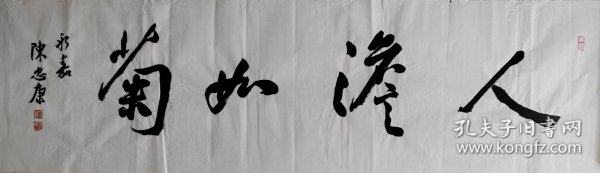 人澹如菊
永嘉
陳忠康
孔夫子旧书网
www.kongfz.com